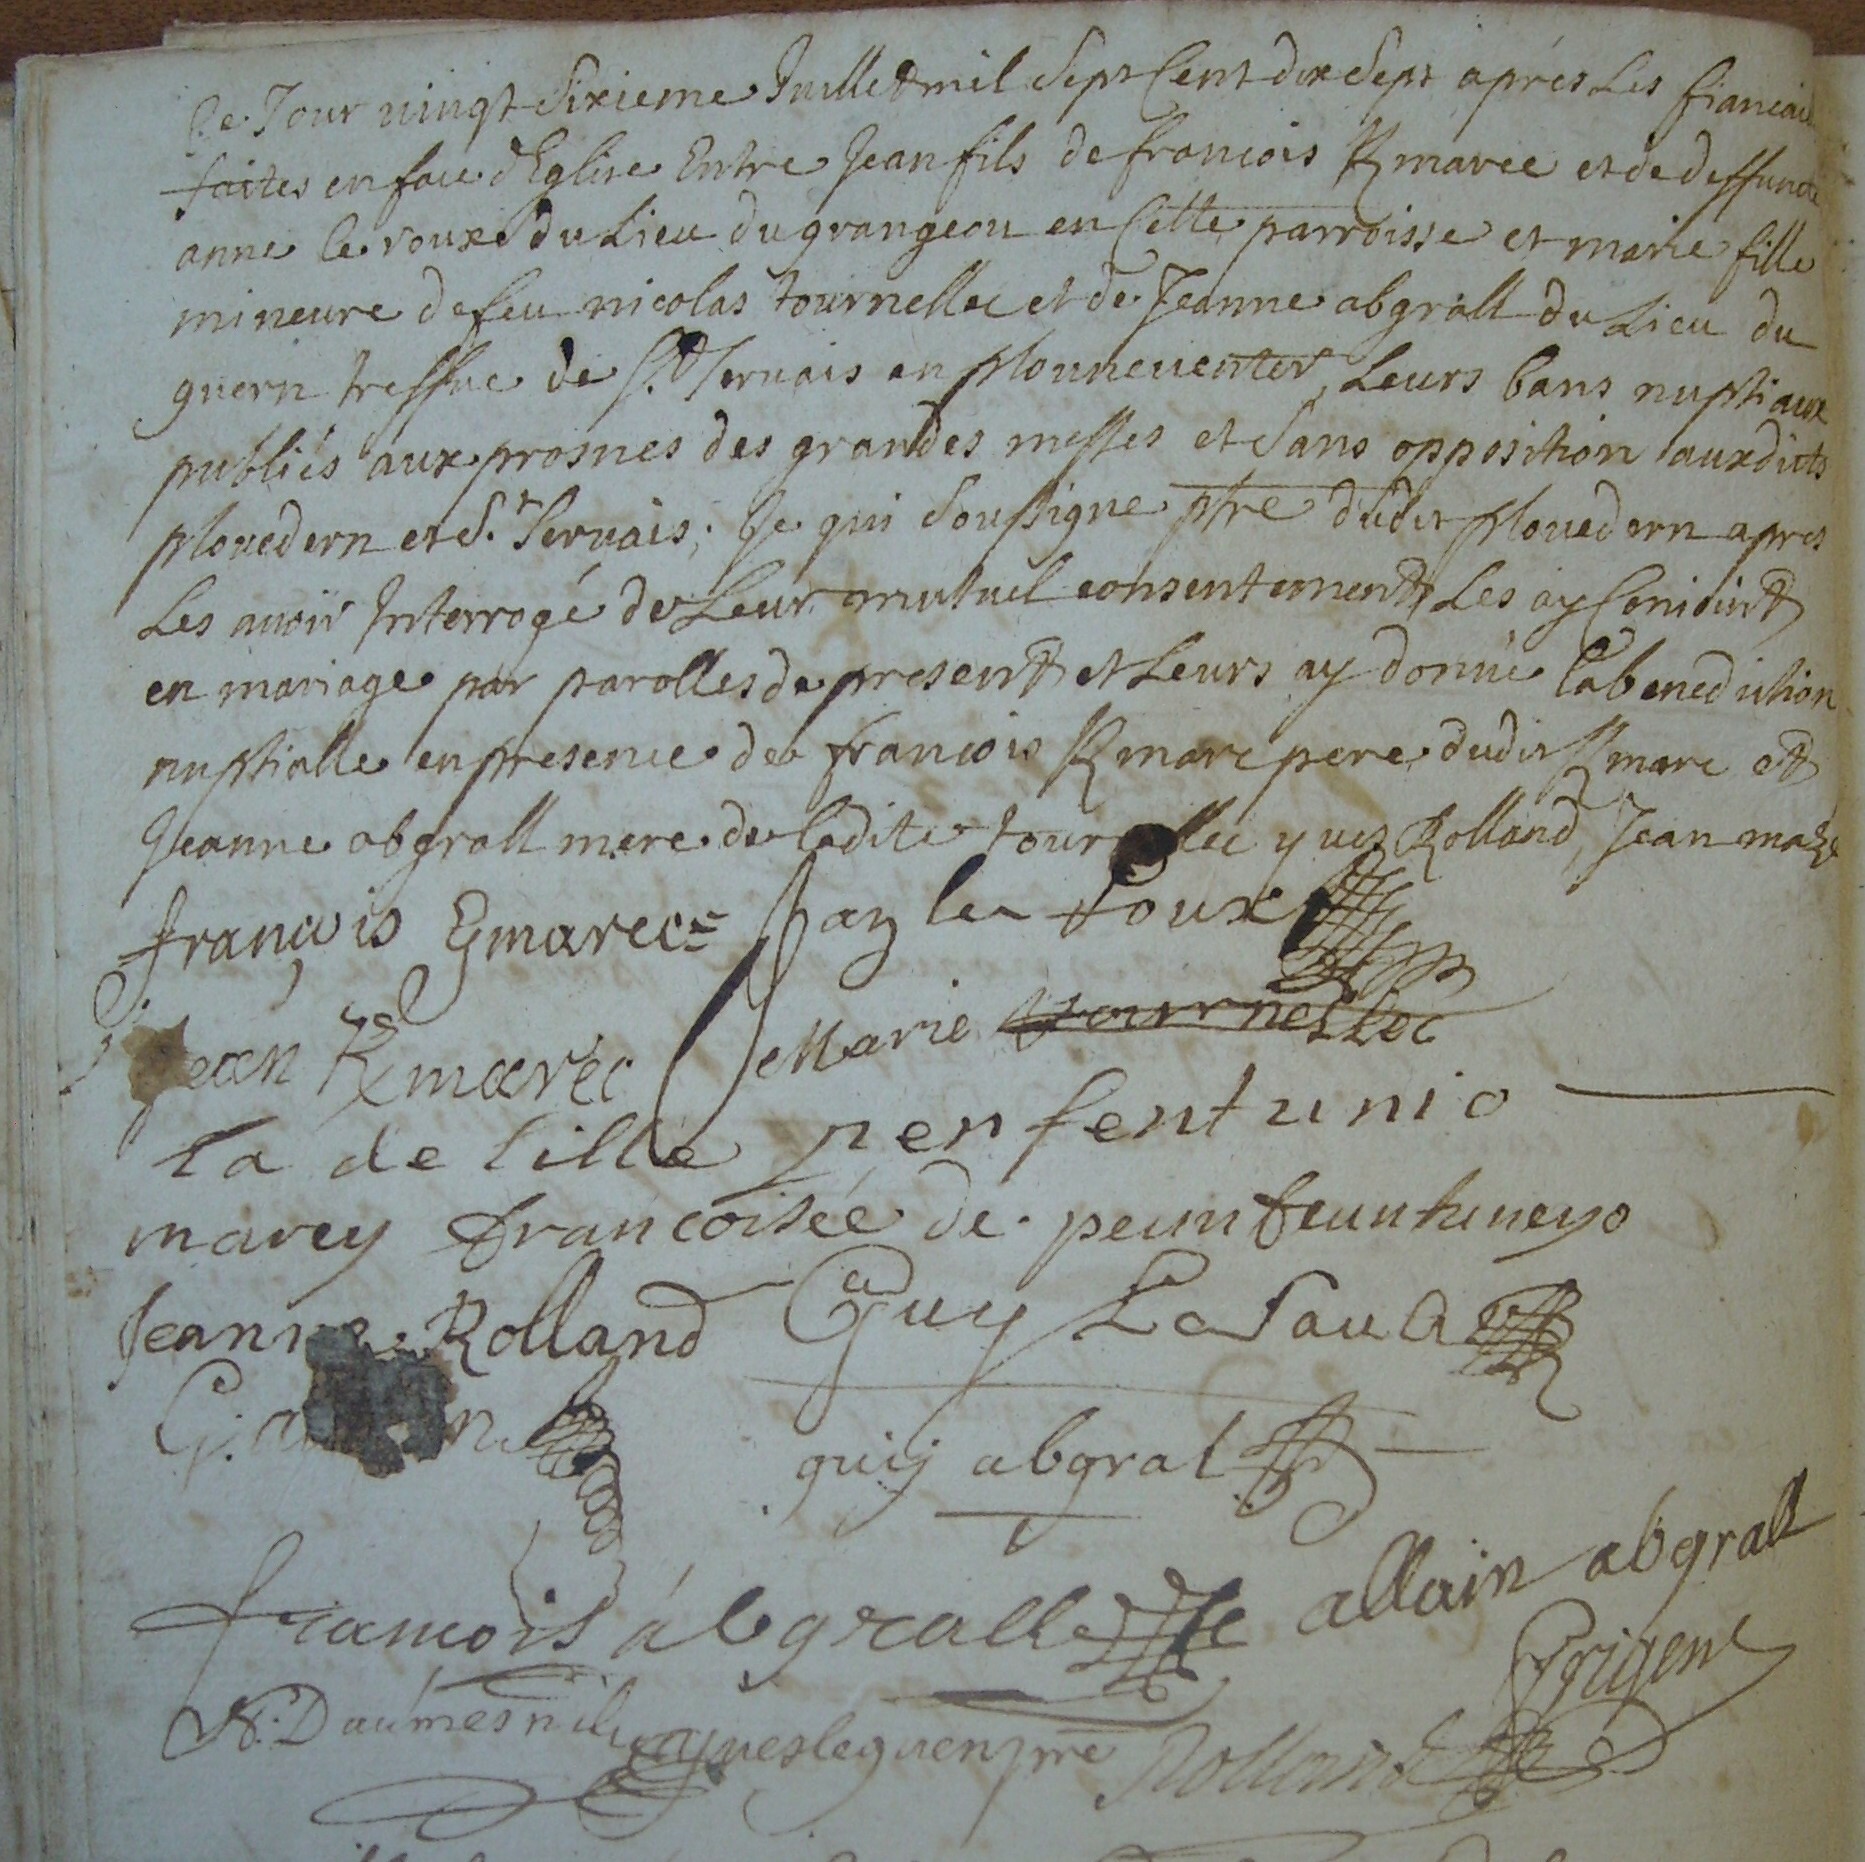 Ce Jour vingt Sixieme Juillet mil Sept Cent dix Sept aprés Les fiancail
faites en face d'Eglise Entre Jean fils de francois Kmarec et de deffuncte
anne le roux du Lieu du grangeou en Cette parroisse et marie fille
mineure de feu nicolas tournellec et de Jeanne abgrall du Lieu du
guern treffve de St Servais en plouneventer, Leurs bans nuptiaux
publiés aux prosnes des grandes messes et Sans opposition auxdicts
plouedern et St Servais; Je qui Soussigne ptre dudit plouedern apres
Les avoir Interrogé de Leur mutuel consentement, Les ay Conioint
en mariage par parolles de present et Leurs ay donné la benediction
nuptialle en presence de francois Kmarc pere dudit Kmarc et
Jeanne abgrall mere de ladite tour lec yves Rolland, Jean maze
françois Kmarec Jan le Roux
Jean Kmarec Marie tournellec
ta de lille penfentunio
marey francoisée de peunfeuntuneyo
Jeanne Rolland Guy Le Sault
G.
guij abgral
francois abgrall allain abgrall
N. Daumesnil yves le guen ptre Rolland Grigent